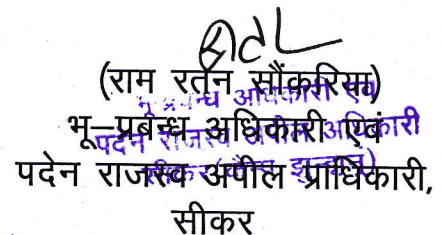 (राम रतन सौंकरिया)
भू–प्रबन्ध अधिकारी एवं
पदेन राजस्व अपील प्राधिकारी,
सीकर
भू प्रबन्ध अधिकारी एवं
पदेन राजस्व अपील अधिकारी